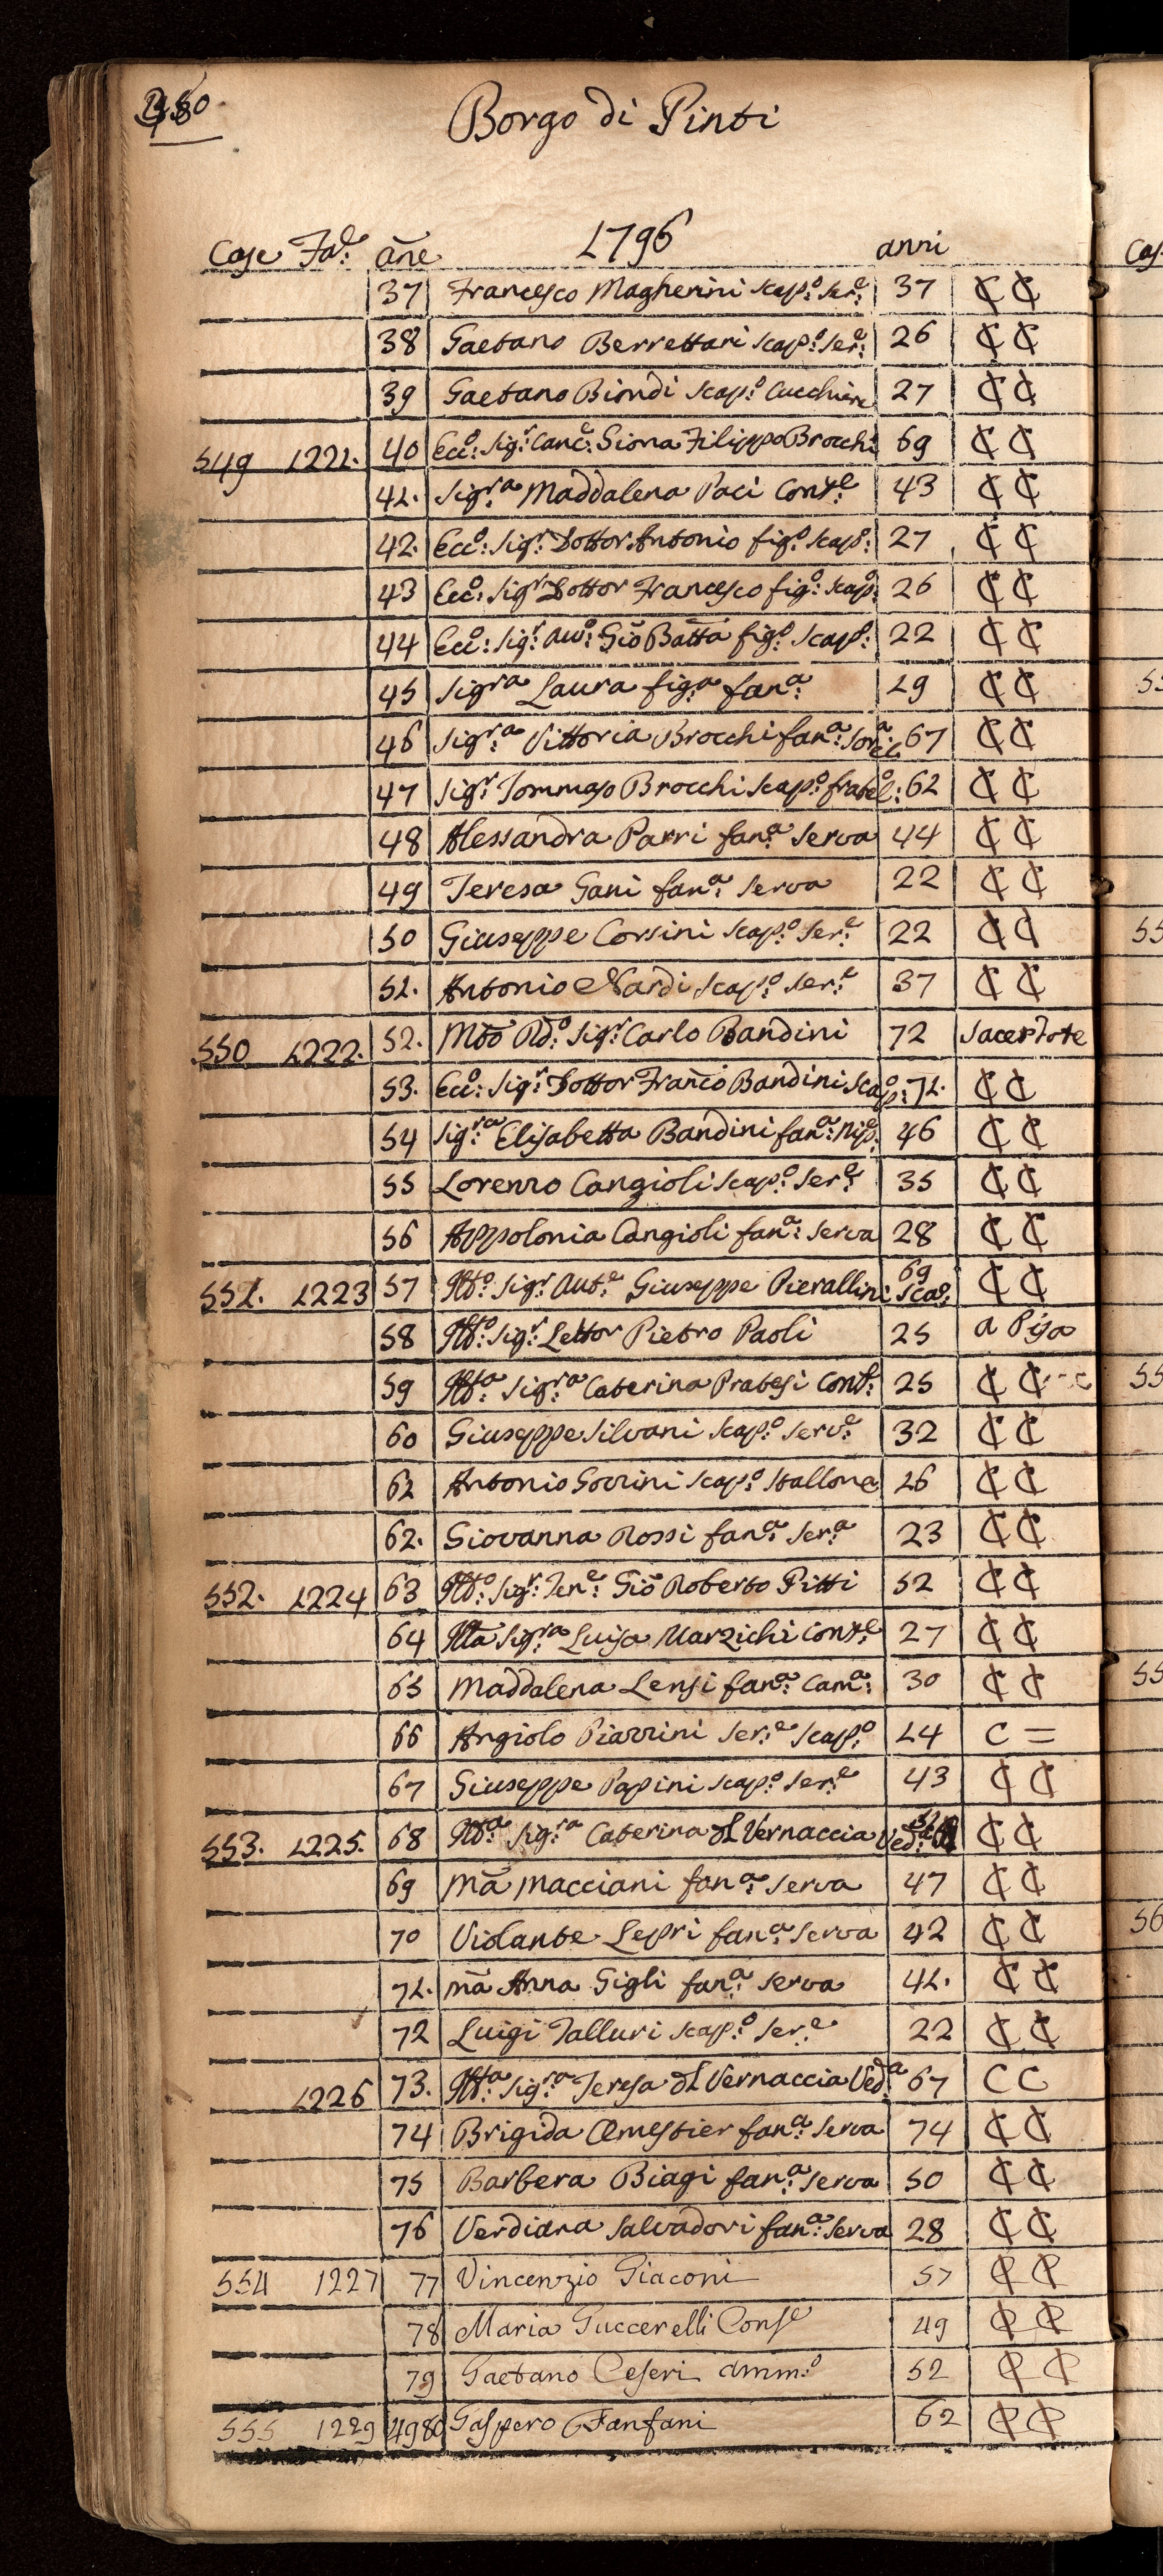 Borgo di Pinti
Case Fa:e añe 1796 anni
37 Francesco Magherini scap:o ser:e 37 ₵ ₵
38 Gaetano Berrettari scap:o ser:e 26 ₵ ₵
39 Gaetano Biondi scap:o Cucchiere 27 ₵ ₵
549 1221. 40 Ecc:o Sig:r Canc:e Siona Filippo Brocchi 69 ₵ ₵
41. Sig:ra Maddalena Paci Conte 43 ₵ ₵
42. Ecc:o Sig:r Dottor Antonio fig:o scap:o 27 ₵ ₵
43 Ecc:o Sig:r Dottor Francesco fig:o scap:o 26 ₵ ₵
44 Ecc:o Sig:r Auv:o Gio Batta fig:o scap:o 22 ₵ ₵
45 Sig:ra Laura fig:a fan:a 19 ₵ ₵
46 Sig:ra Vittoria Brocchi fan:a sorel:a 67 ₵ ₵
47 Sig:r Tommaso Brocchi scap:o fratel:o 62 ₵ ₵
48 Alessandra Parri fan:a serva 44 ₵ ₵
49 Teresa Gani fan:a serva 22 ₵ ₵
50 Giuseppe Corsini scap:o ser:e 22 ₵ ₵
51. Antonio Nardi scap:o ser:e 37 ₵ ₵
550 1222. 52. Mto Rd:o Sig:r Carlo Bandini 72 Sacerdote
53. Ecc:o Sig:r Dottor Franco Bandini scap:o 71. ₵ ₵
54 Sig:ra Elisabetta Bandini fan:a nip:e 46 ₵ ₵
55 Lorenzo Cangioli scap:o ser:e 35 ₵ ₵
56 Appolonia Cangioli fan:a serva 28 ₵ ₵
551. 1223 57 Ill:o Sig:r Aud:e Giuseppe Pierallini scao: 69 ₵ ₵
58 Ill:o Sig:r Lettor Pietro Paoli 25 a Pisa
59 Ill:a Sig:ra Caterina Pratesi Cont: 25 ₵ ₵
60 Giuseppe Silvani scap:o serv:e 32 ₵ ₵
61 Antonio Gorrini scap:o stallone 26 ₵ ₵
62. Giovanna Rossi fan:a ser:a 23 ₵ ₵
552. 1224 63 Ill:o Sig:r Ten:e Gio Roberto Pitti 52 ₵ ₵
64 Illa Sig:ra Luisa Marzichi Conte 27 ₵ ₵
65 Maddalena Lensi fan:a Cam:a 30 ₵ ₵
66 Angiolo Piarrini ser:e scap:o 14 C =
67 Giuseppe Papini scap:o ser:e 43 ₵ ₵
553. 1225. 68 Ill:a Sig:ra Caterina del Vernaccia Ved:a ₵ ₵
69 Mã Macciani fan:a serva 47 ₵ ₵
70 Violante Lepri fan:a serva 42 ₵ ₵
71. Mã Anna Gigli fan:a serva 41. ₵ ₵
72 Luigi Talluri scap:o ser:e 22 ₵ ₵
1226 73. Ill:a Sig:ra Teresa del Vernaccia Ved:a 67 C C
74 Brigida Omestier fan:a serva 74 ₵ ₵
75 Barbera Biagi fan:a serva 50 ₵ ₵
76 Verdiana Salvadori fan:a serva 28 ₵ ₵
554 1227 77 Vincenzio Giaconi 57 ₵ ₵
78 Maria Guccerelli Conse 49 ₵ ₵
79 Gaetano Ceseri amm:o 52 ₵ ₵
555 1229 4980 Gaspero Fanfani 62 ₵ ₵